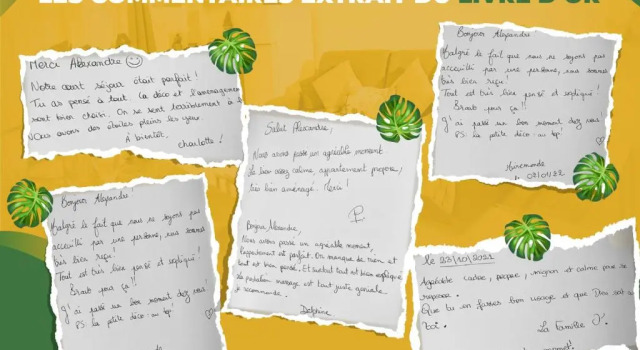 LES COMMENTAIRES EXTRAIT DU LIVRE D'OR
Merci Alexandre
Notre court séjour était parfait !
Tu as pensé à tout la déco et l'aménagement
sont bien choisi. On se sent terriblement à
Nous avons des étoiles pleins les yeux.
À bientôt,
Charlotte !
Bonjour Alexandre
Malgré le fait que nous ne soyons pas
accueilli par une personne, nous sommes
très bien reçu !
Tout est très bien pensé et expliqué !
Bravo pour ça !!
J'ai passé un bon moment chez vous
PS: la petite déco : au top!
02/01/22
Salut Alexandre,
Nous avons passé un agréable moment
Le lieu assez calme, appartement propre,
très bien aménagé. Merci !
Bonjour Alexandre,
Nous avons passé un agréable moment,
l'appartement est parfait. On manque de rien et
tout est bien pensé. Et surtout tout est bien expliqué
ménage est tout juste géniale
recommande.
Delphine
Bonjour Alexandre !
Malgré le fait que nous ne soyons pas
accueilli par une personne, nous sommes
très bien reçu !
Tout est très bien pensé et expliqué !
Bravo pour ça !!
J'ai passé un bon moment chez vous
PS: la petite déco : au top!
le 23/10/2021
Agréable cadre, propre, mignon et calme pour se
reposer.
Que tu en fasses bon usage et que Dieu soit
toi.
La Famille J.